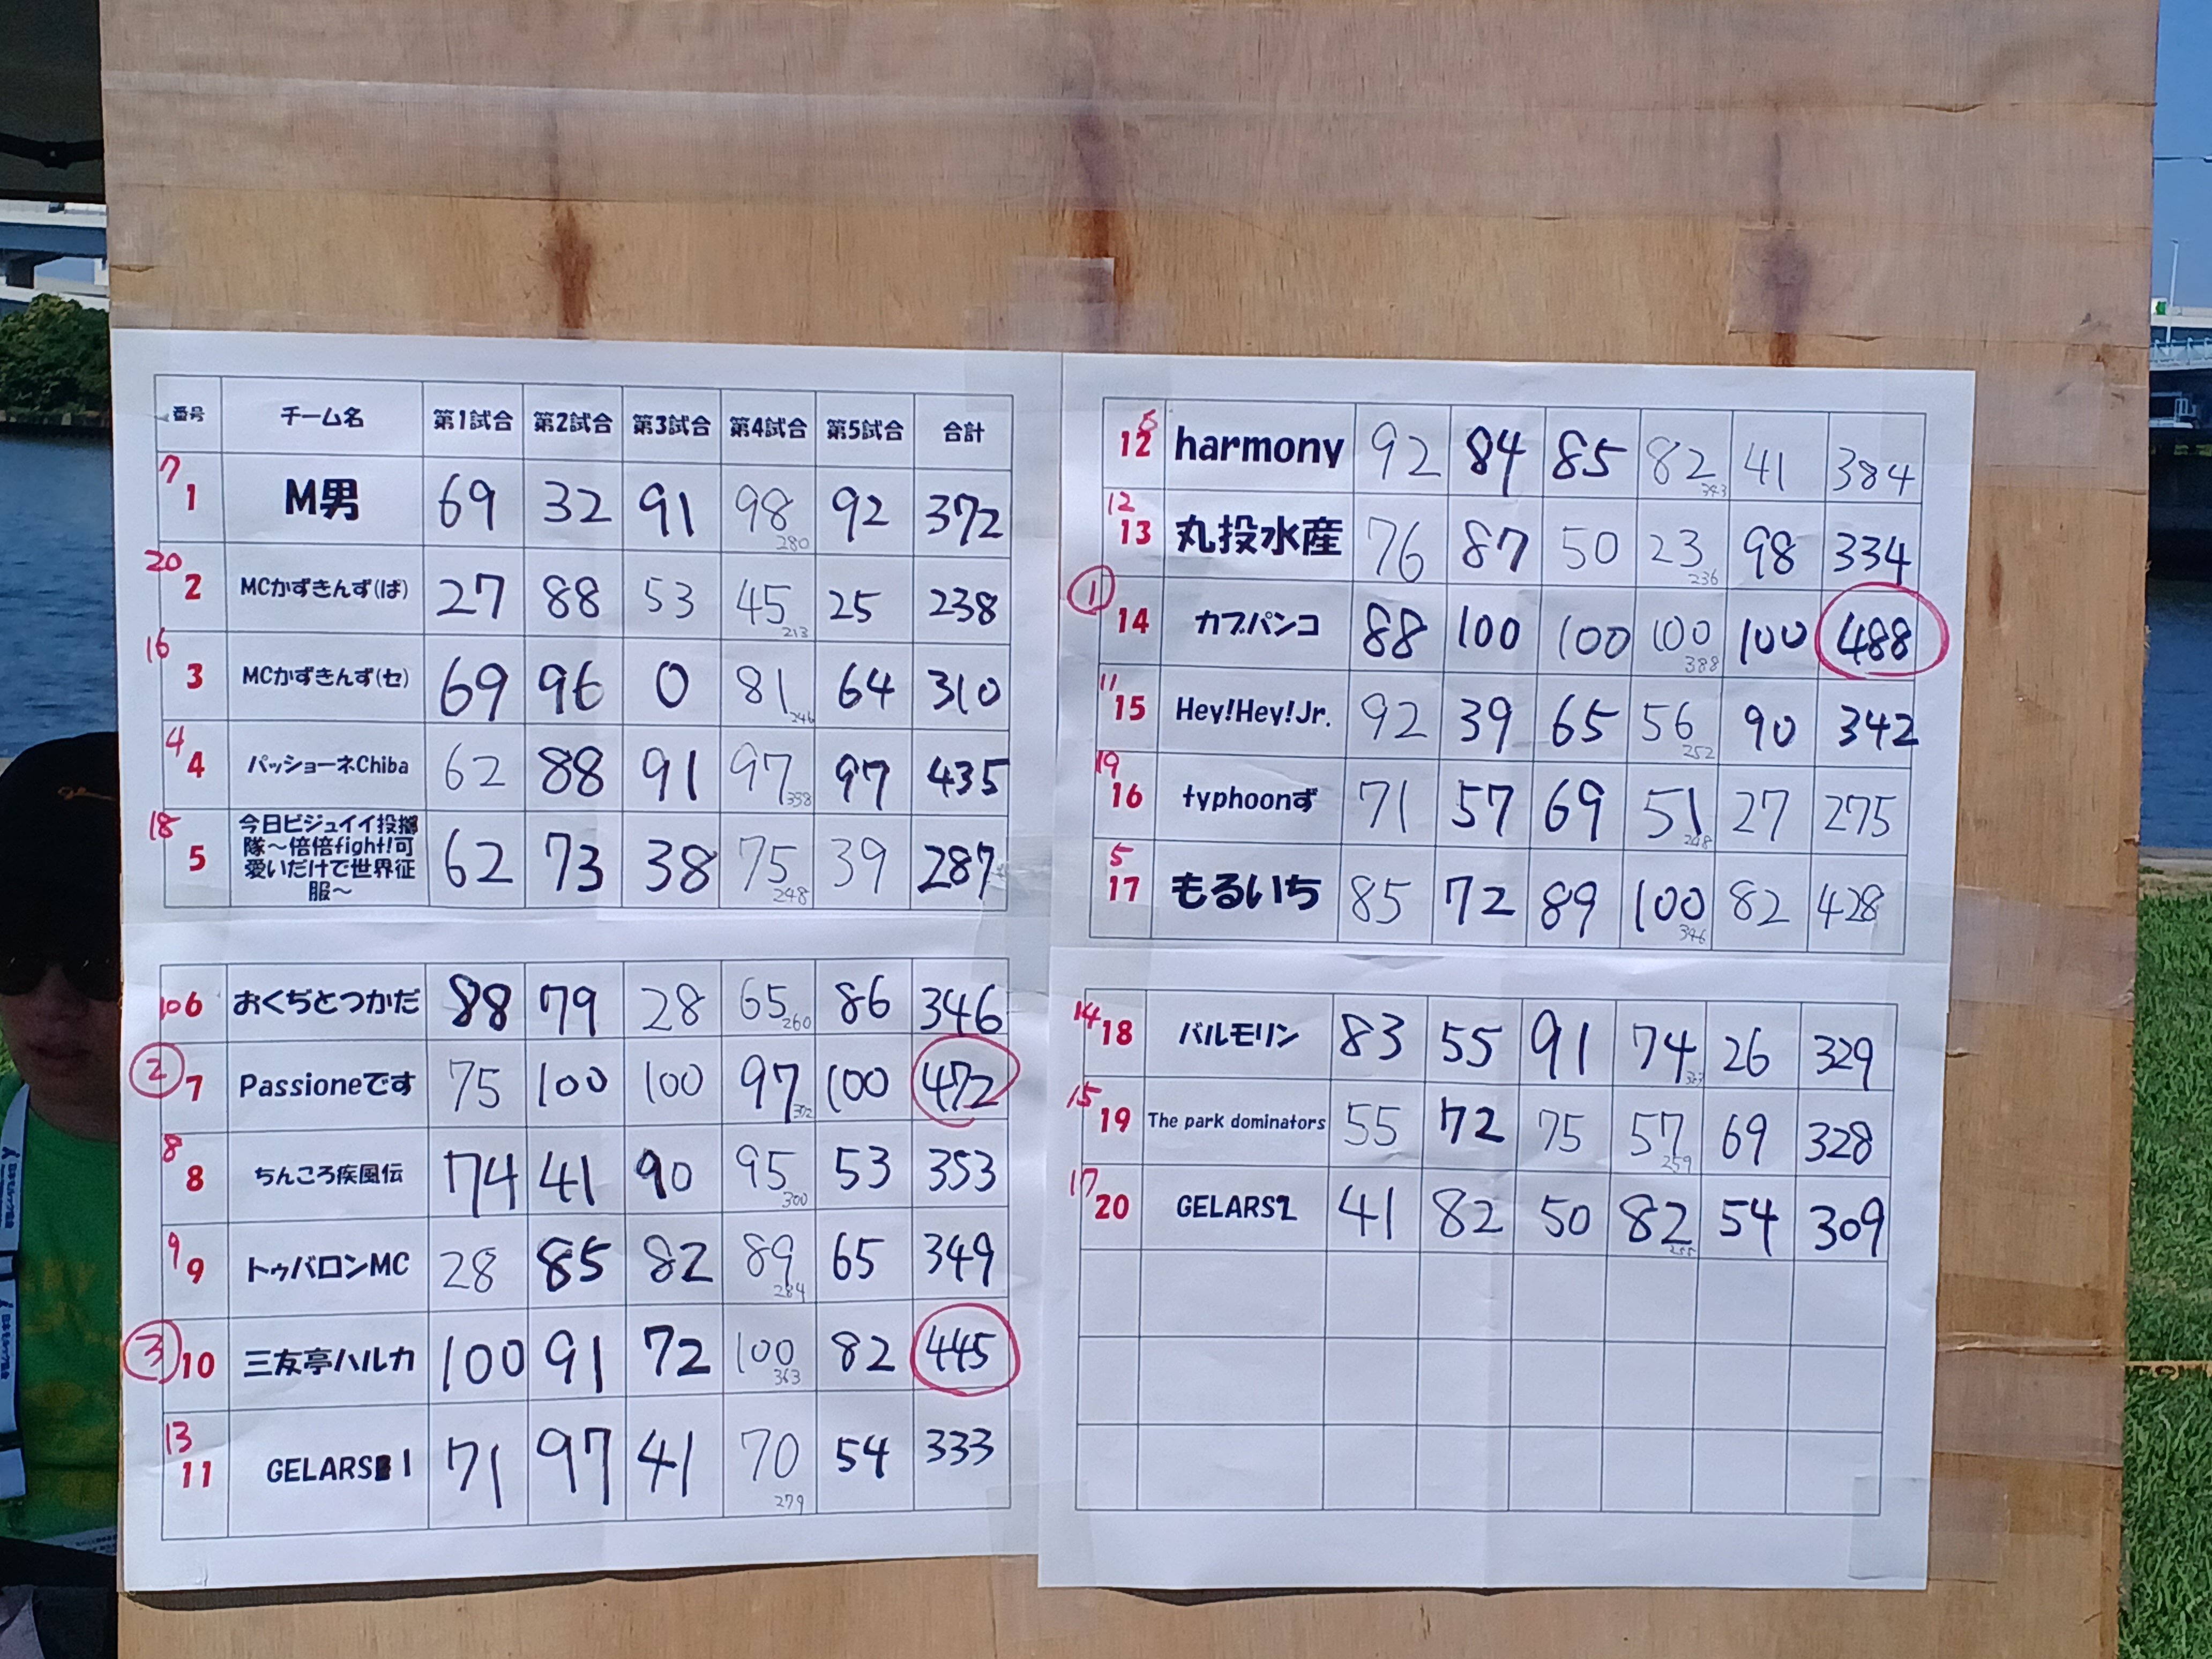 番号 チーム名 第1試合 第2試合 第3試合 第4試合 第5試合 合計
7 1 M男 69 32 91 98 280 92 372
20 2 MCかずきんず(ば) 27 88 53 45 213 25 238
16 3 MCかずきんず(セ) 69 96 0 81 246 64 310
4 4 パッショーネChiba 62 88 91 97 338 97 435
18 5 今日ビジュイイ投擲
隊～倍倍fight!可
愛いだけで世界征
服～ 62 73 38 75 248 39 287
10 6 おくぢとつかだ 88 79 28 65 260 86 346
2 7 Passioneです 75 100 100 97 372 100 472
8 8 ちんころ疾風伝 74 41 90 95 300 53 353
9 9 トゥバロンMC 28 85 82 89 284 65 349
3 10 三友亭ハルカ 100 91 72 100 363 82 445
13 11 GELARS 1 71 97 41 70 279 54 333
6 12 harmony 92 84 85 82 343 41 384
12 13 丸投水産 76 87 50 23 236 98 334
1 14 カブパンコ 88 100 100 100 388 100 488
11 15 Hey!Hey!Jr. 92 39 65 56 252 90 342
19 16 typhoonず 71 57 69 51 248 27 275
5 17 もるいち 85 72 89 100 346 82 428
14 18 バルモリン 83 55 91 74 26 329
15 19 The park dominators 55 72 75 57 259 69 328
17 20 GELARS2 41 82 50 82 255 54 309